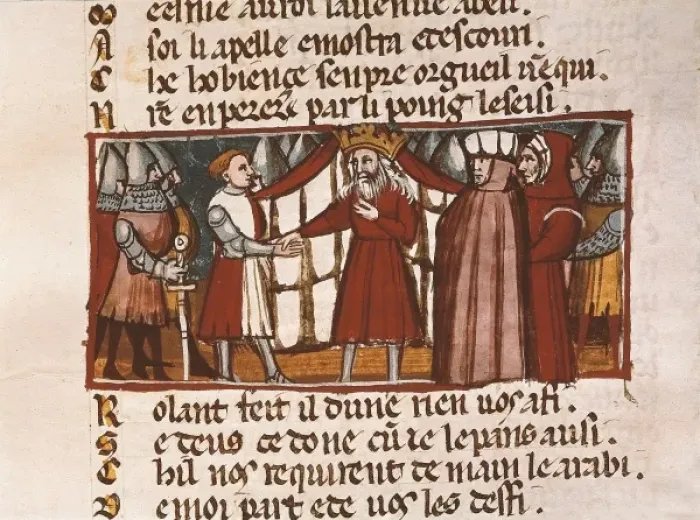 A soi li apelle e mostra et escouri.
C he bobience senpre orgueil
N rē enperere par li poing le seisi.
R olant feit il dune rien uos afi.
S e deus ce done cū ie le pans ausi.
C hil nos requirent de main le arabi.
D e moi part e de uos les deffi.